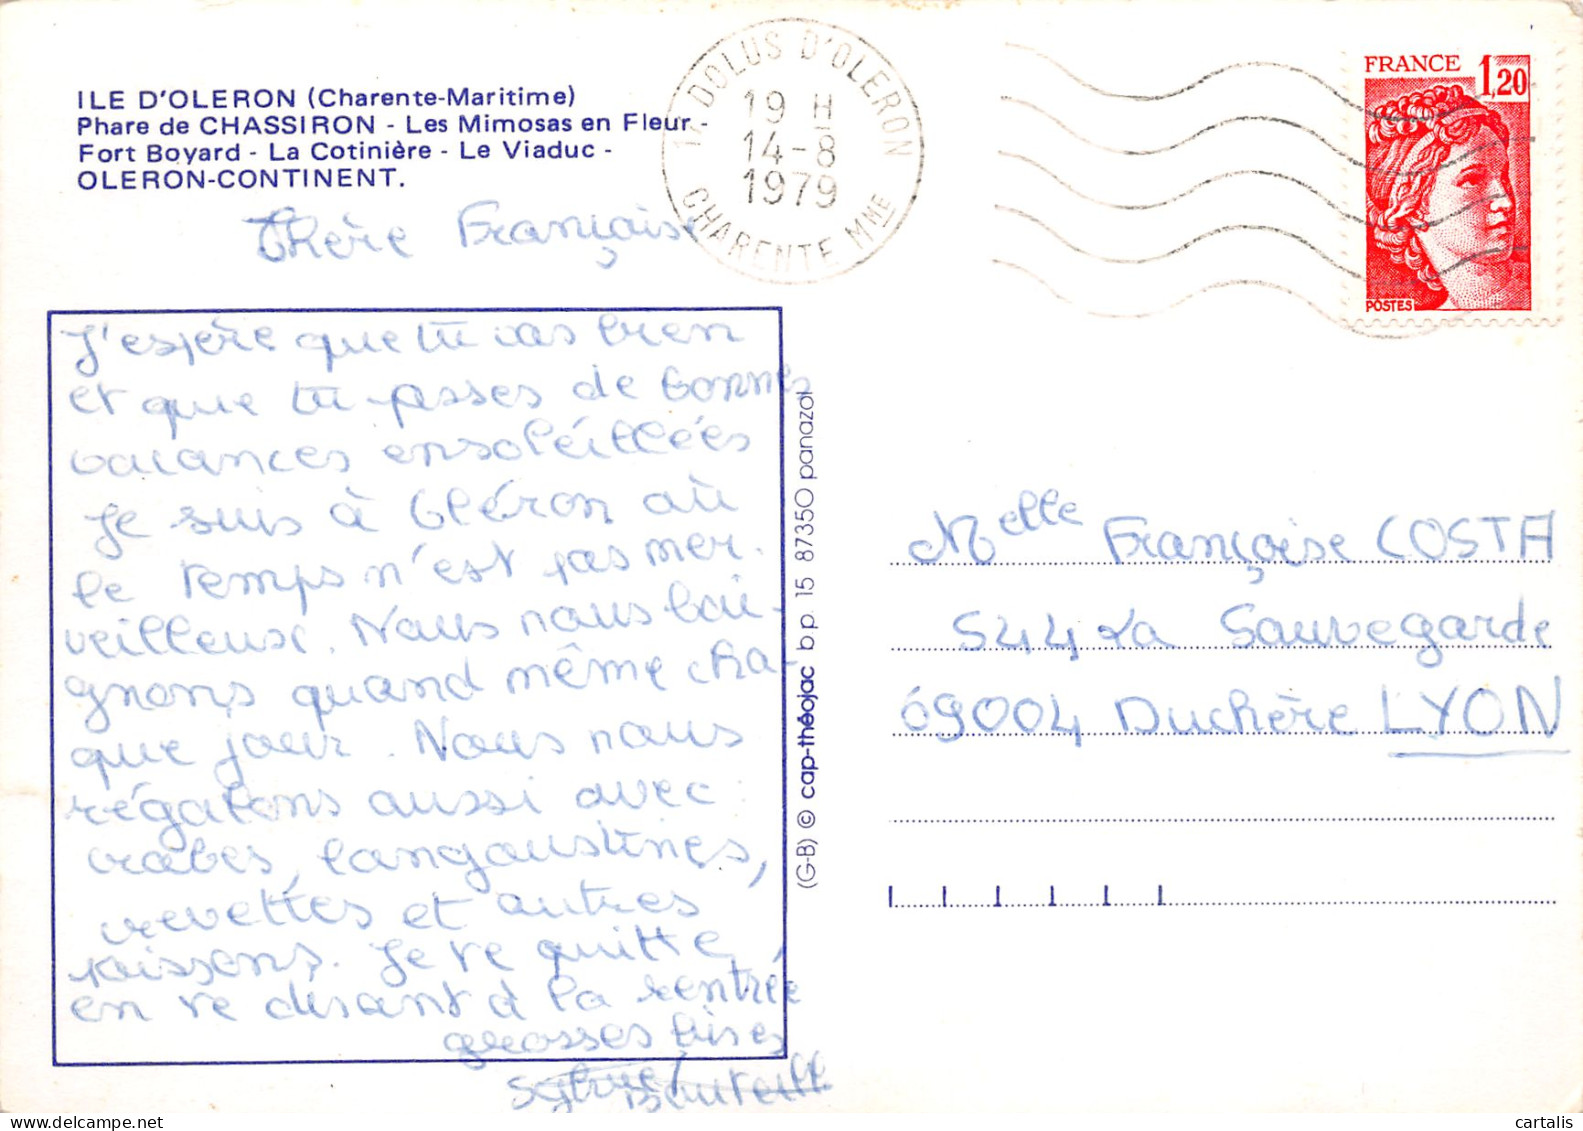 ILE D'OLERON (Charente-Maritime)
Phare de CHASSIRON - Les Mimosas en Fleur -
Fort Boyard - La Cotinière - Le Viaduc -
OLERON-CONTINENT.
17 DOLUS D'OLERON
19 H
14-8
1979
CHARENTE MME
FRANCE 1,20
POSTES
Chère Françoise
J'espère que tu vas bien
et que tu passes de bonnes
vacances ensoleillées
Je suis à Oléron où
le temps n'est pas mer-
veilleux. Nous nous bai-
gnons quand même cha-
que jour. Nous nous
régalons aussi avec
crabes, langoustines,
crevettes et autres
poissons. Je te quitte,
en te disant à la rentrée
grosses bises
Sylvie
(G-B) © cap-théojac b.p. 15 87350 panazol
Melle Françoise COSTA
544 La Sauvegarde
69004 Duchère LYON
cartalis